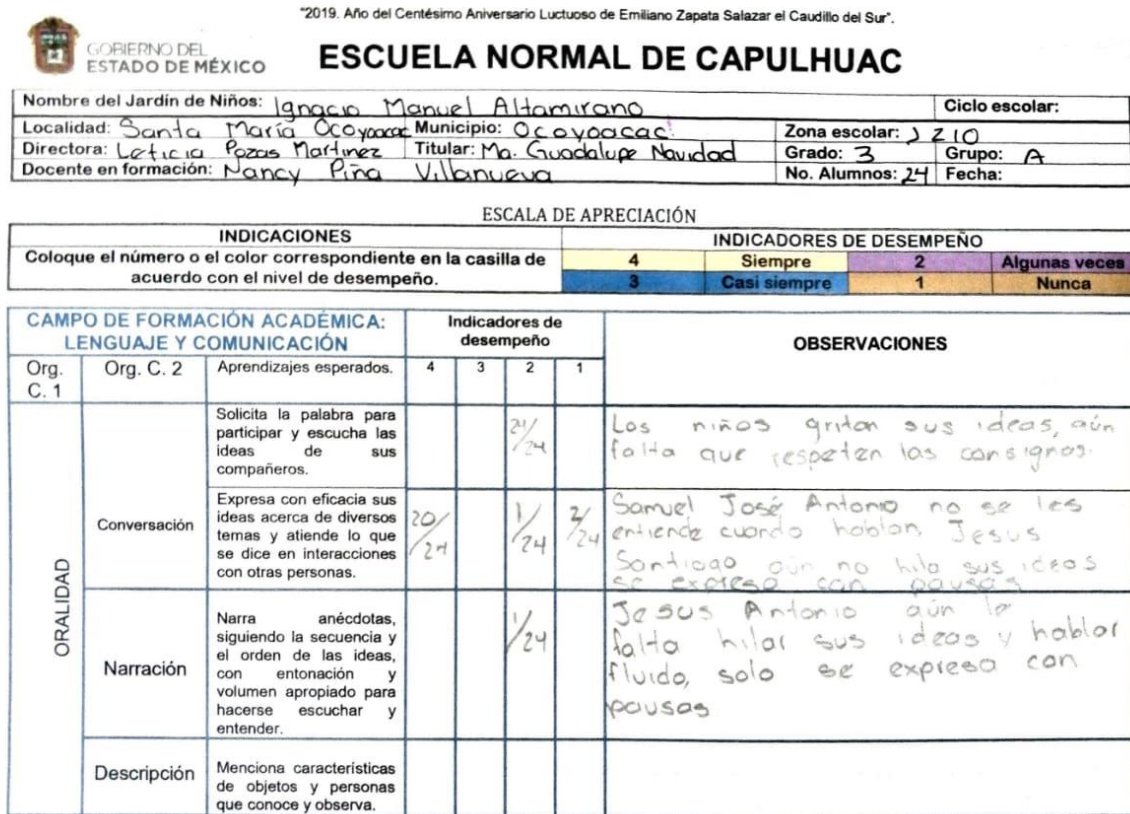 "2019. Año del Centésimo Aniversario Luctuoso de Emiliano Zapata Salazar el Caudillo del Sur".
GOBIERNO DEL
ESTADO DE MÉXICO
ESCUELA NORMAL DE CAPULHUAC
Nombre del Jardín de Niños: Ignacio Manuel Altamirano Ciclo escolar:
Localidad: Santa María Ocoyoacac Municipio: Ocoyoacac Zona escolar: J210
Directora: Leticia Pozas Martinez Titular: Ma. Guadalupe Navidad Grado: 3 Grupo: A
Docente en formación: Nancy Piña Villanueva No. Alumnos: 24 Fecha:
ESCALA DE APRECIACIÓN
INDICACIONES INDICADORES DE DESEMPEÑO
Coloque el número o el color correspondiente en la casilla de
acuerdo con el nivel de desempeño.
4 Siempre 2 Algunas veces
3 Casi siempre 1 Nunca
CAMPO DE FORMACIÓN ACADÉMICA:
LENGUAJE Y COMUNICACIÓN
Indicadores de
desempeño
OBSERVACIONES
Org.
C. 1
Org. C. 2
Aprendizajes esperados.
4 3 2 1
ORALIDAD
Solicita la palabra para
participar y escucha las
ideas de sus
compañeros.
24/24
Los niños gritan sus ideas, aún
falta que respeten las consignas.
Conversación
Expresa con eficacia sus
ideas acerca de diversos
temas y atiende lo que
se dice en interacciones
con otras personas.
20/24
1/24
2/24
Samuel José Antonio no se les
entiende cuando hablan, Jesus
Santiago aún no hila sus ideas
se expresa con pausas
Narración
Narra anécdotas,
siguiendo la secuencia y
el orden de las ideas,
con entonación y
volumen apropiado para
hacerse escuchar y
entender.
1/24
Jesus Antonio aún le
falta hilar sus ideas y hablar
fluido, solo se expresa con
pausas
Descripción
Menciona características
de objetos y personas
que conoce y observa.